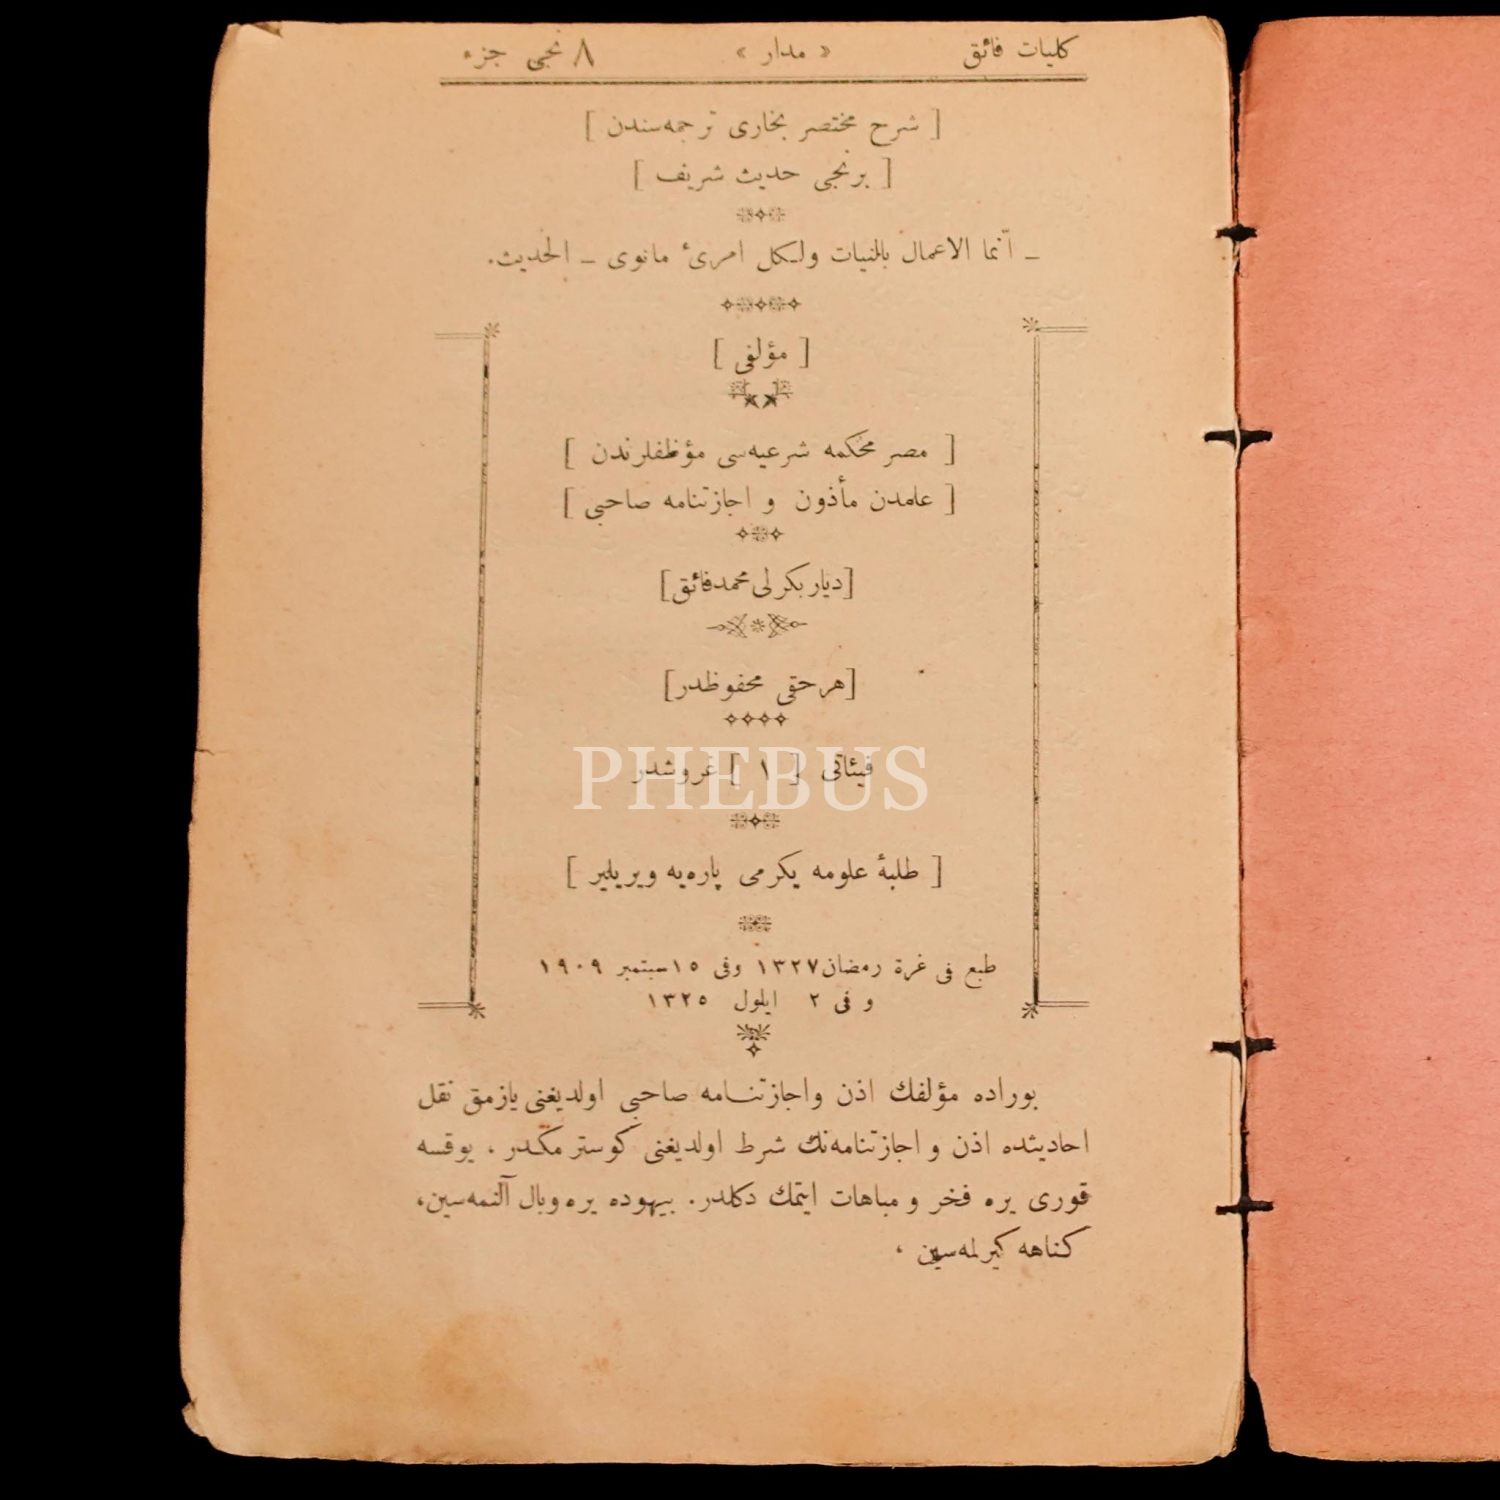 كليات فائق « مدار » ٨ نجى جزء
[ شرح مختصر بخارى ترجمه‌سندن ]
[ برنجى حديث شريف ]
ـ انّما الاعمال بالنيات ولكل امرئ مانوى ـ الحديث.
[ مؤلفى ]
[ مصر محكمه شرعيه‌سى مؤظفلرندن ]
[ علمدن مأذون و اجازتنامه صاحبى ]
[ ديار بكرلى محمد فائق ]
[ هر حقى محفوظدر ]
فيئاتى [ ١ ] غروشدر
PHEBUS
[ طلبهٔ علومه يكرمى پاره‌يه ويريلير ]
طبع فى غرة رمضان ١٣٢٧ وفى ١٥ سبتمبر ١٩٠٩
و فى ٢ ايلول ١٣٢٥
بوراده مؤلفك اذن واجازتنامه صاحبى اولديغنى يازمق نقل
احاديثده اذن و اجازتنامه‌نك شرط اولديغنى كوسترمكدر . يوقسه
قورى يره فخر و مباهات ايتمك دكلدر. بيهوده يره وبال آلنمه‌سين،
كناهه كيرلمه‌سين ،